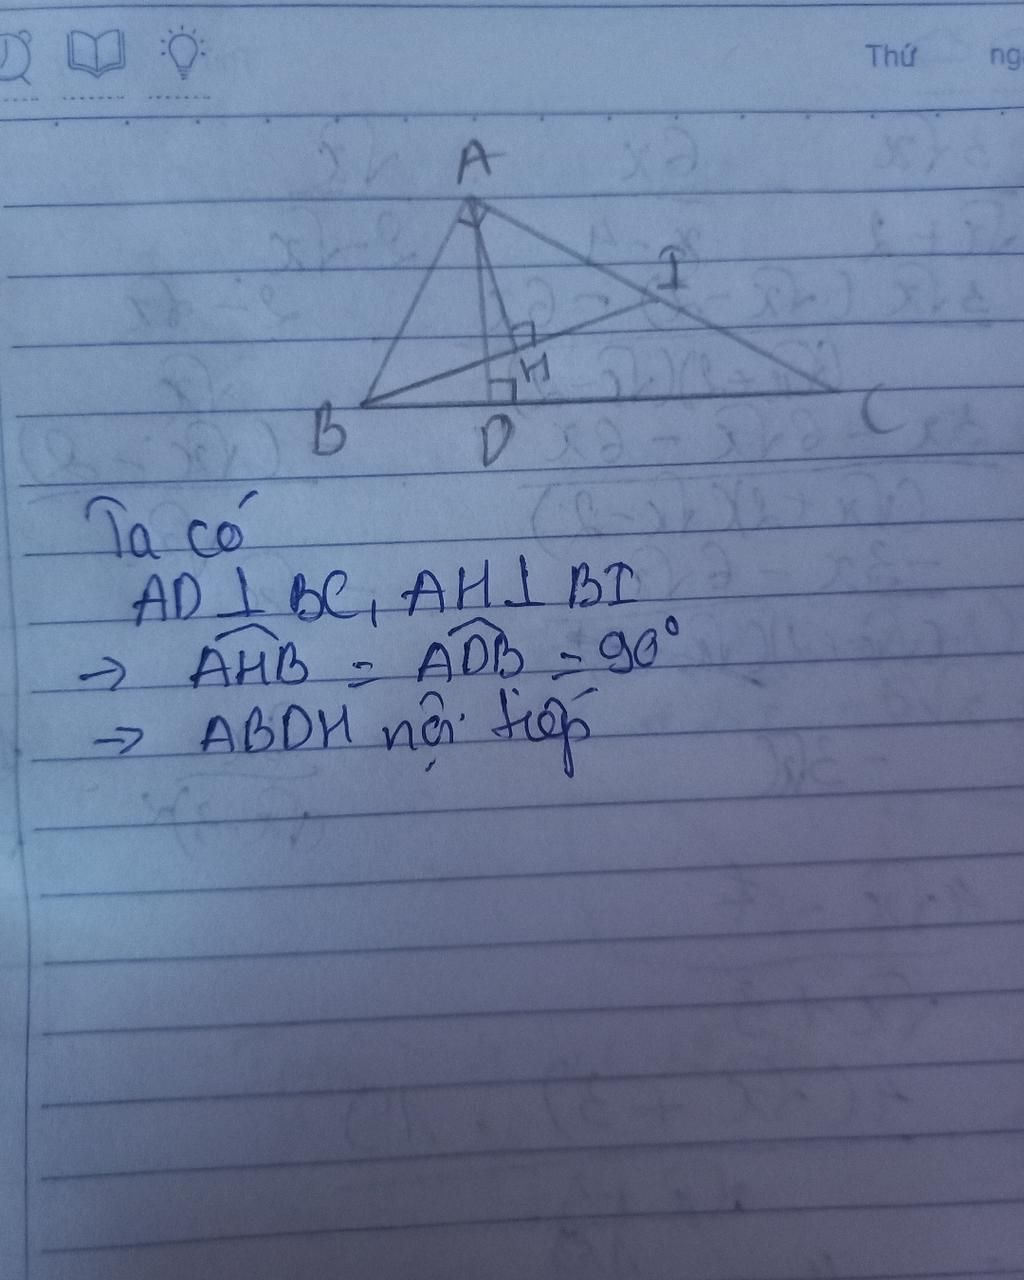 Thứ
A
I
H
B
D
C
Ta có
AD ⊥ BC, AH ⊥ BI
→ AHB = ADB = 90°
→ ABDH nội tiếp